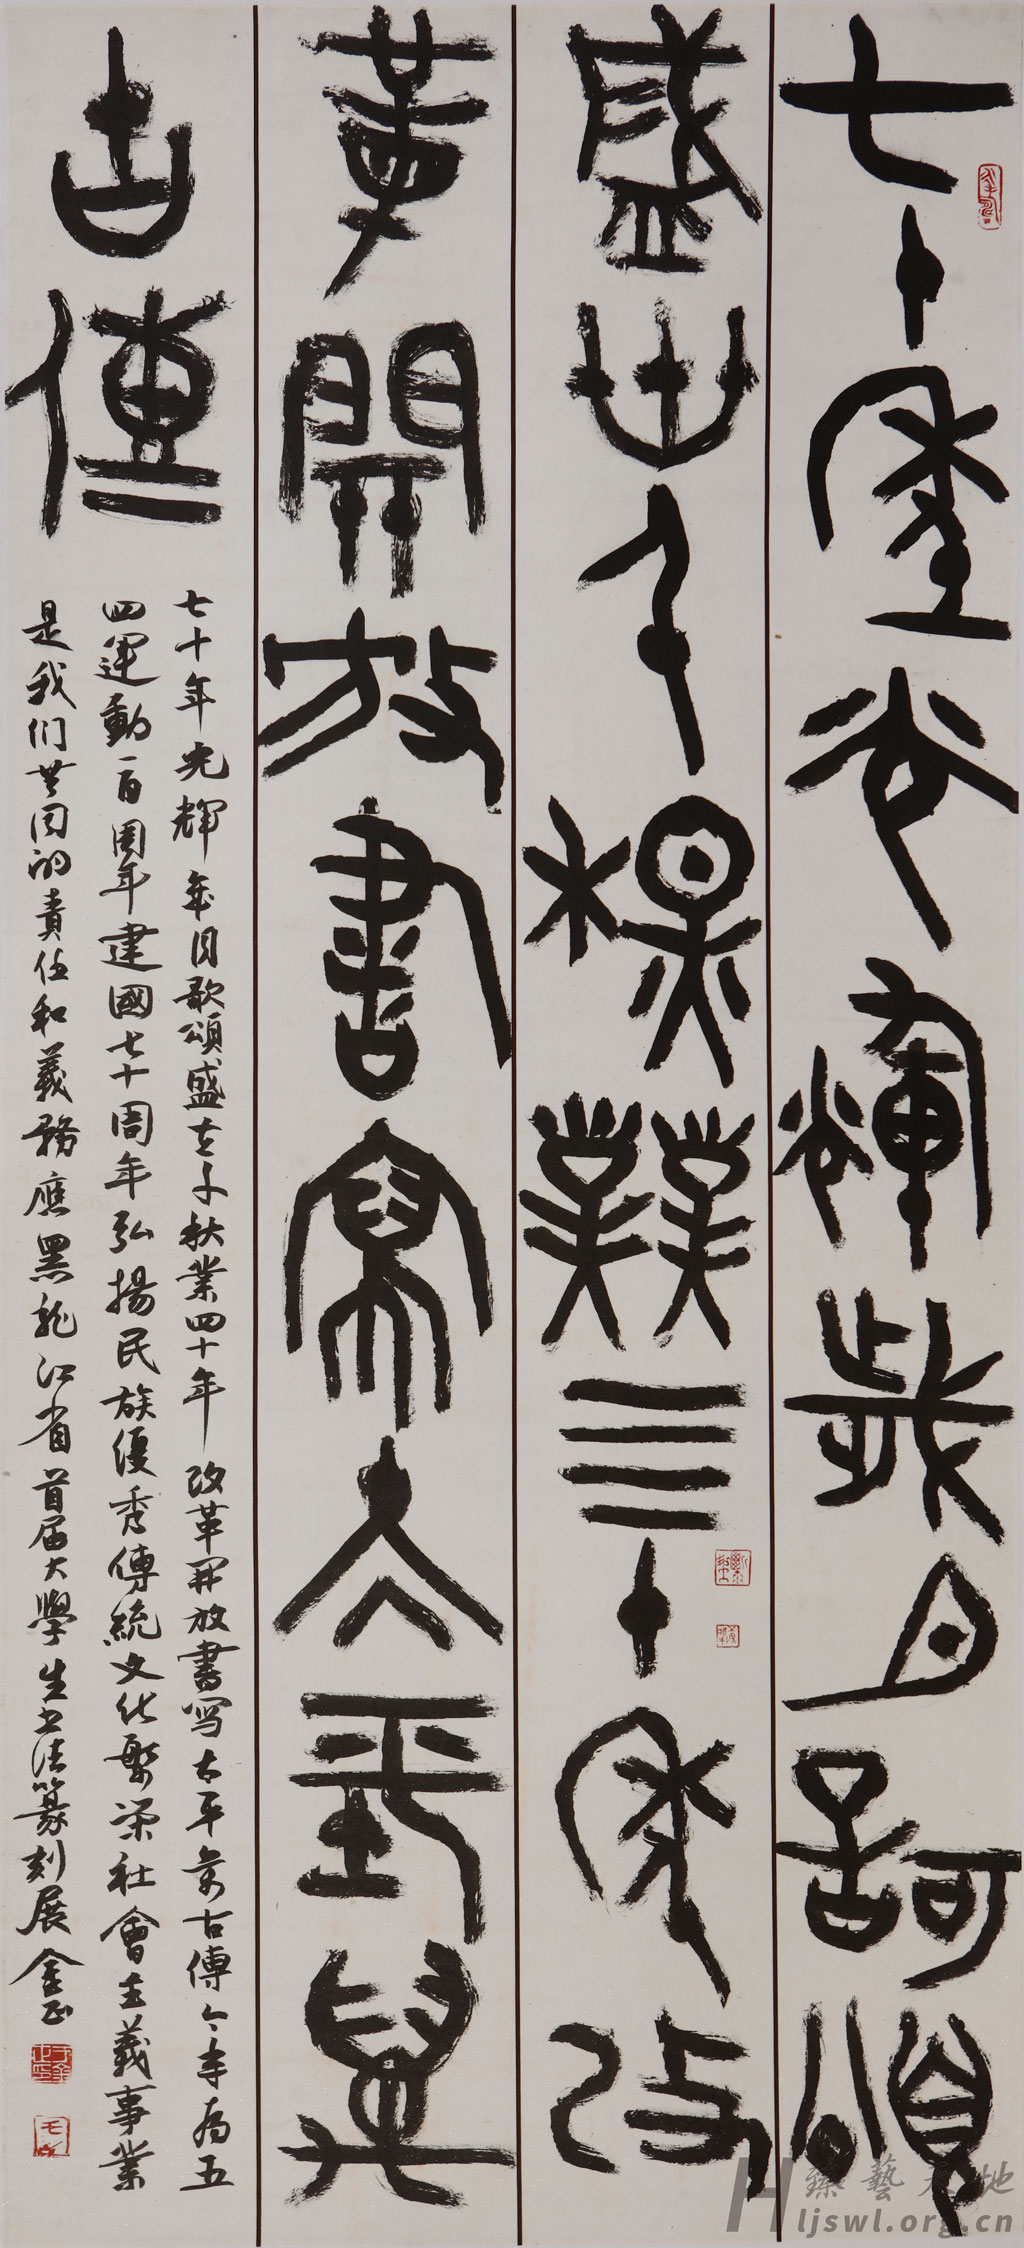 七十年光輝歲月歌頌
盛世千秋業四十年改
革開放書寫太平萬
古傳
七十年光輝歲月歌頌盛世千秋業四十年改革開放書写太平萬古傳今年為五
四運動一百周年建國七十周年弘揚民族優秀傳統文化繁榮社會主義事業
是我们共同的責任和義務應黑龍江省首届大學生书法篆刻展金正
Hljswl.org.cn